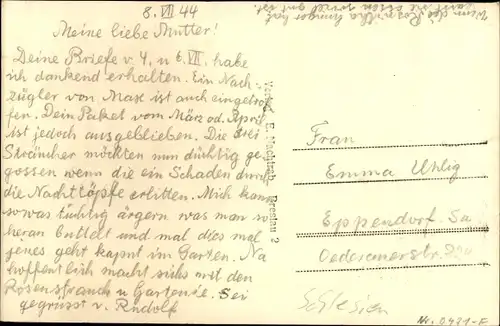 8. VII 44
Meine liebe Mutter!
Deine Briefe v. 4. u 6. VII. habe
ich dankend erhalten. Ein Nach-
zügler von Max ist auch eingetrof-
fen. Dein Paket vom März od. April
ist jedoch ausgeblieben. Die drei
Sträucher möchten nun düchtig ge-
gossen wenn die ein Schaden durch
die Nachttöpfe erlitten. Mich kann
sowas tüchtig ärgern was man so
heran buttelt und mal dies mal
jenes geht kaput im Garten. Na
hoffentlich macht sichs mit den
Rosenstrauch u
gegrüsst v. Rudolf
Sei
Wenn die
hat
ist.
Verlag
Breslau 2
Frau
Emma Uhlig
Eppendorf-Sa
Oederanerstr.
Schlesien
Nr. 0421-F